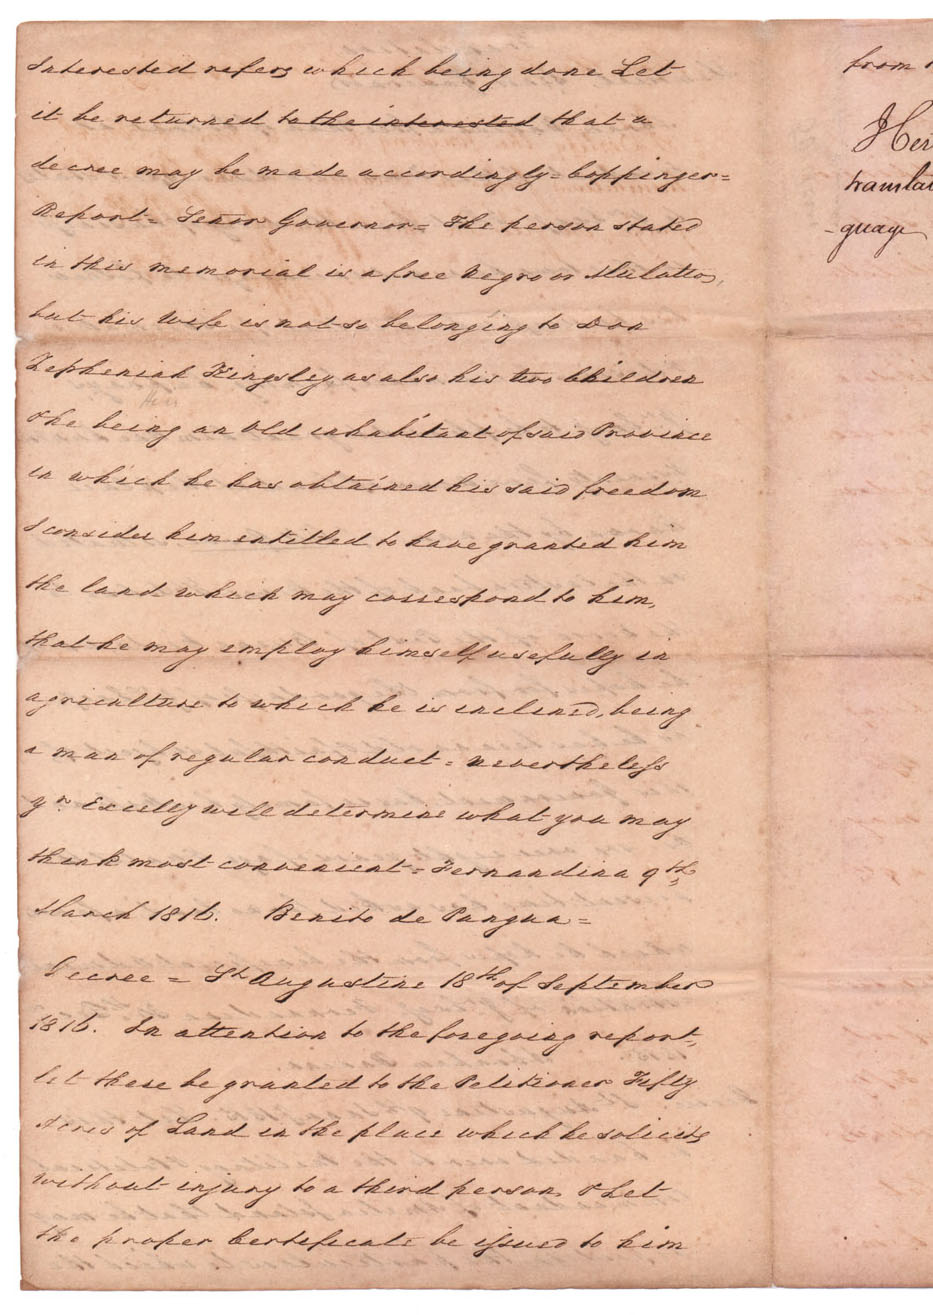 Interested refers which being done Let
it be returned to the interested that a
decree may be made accordingly = Coppinger =
Report = Senor Governor = The person stated
in this memorial is a free Negro or Mulatto,
but his wife is not so belonging to Don
Zepheniah Kingsley as also his two Children
& he being an Old inhabitant of said Province
in which he has obtained his said freedom
I consider him entitled to have granted him
the land which may correspond to him,
that he may employ himself usefully in
agriculture to which he is inclined, being
a man of regular conduct = nevertheless
yr. Excelley will determine what you may
think most convenient = Fernandina 9th
March 1816. Benito de Pangua =
Decree = St Augustine 18th of September
1816. In attention to the foregoing report,
let there be granted to the Petitioner Fifty
Acres of Land in the place which he solicits
without injury to a third person & Let
the proper Certificate be issued to him
from
translat
guage